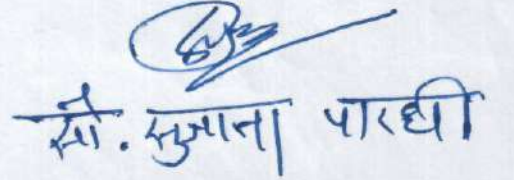 सौ. सुजाता पारधी